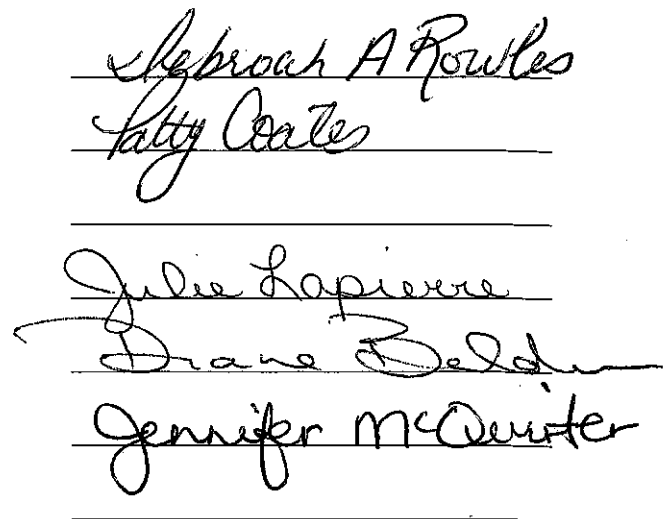 Debroah A Rowles
Patty Coates
Julie Lapierre
Diane Baldwin
Jennifer McQuirter